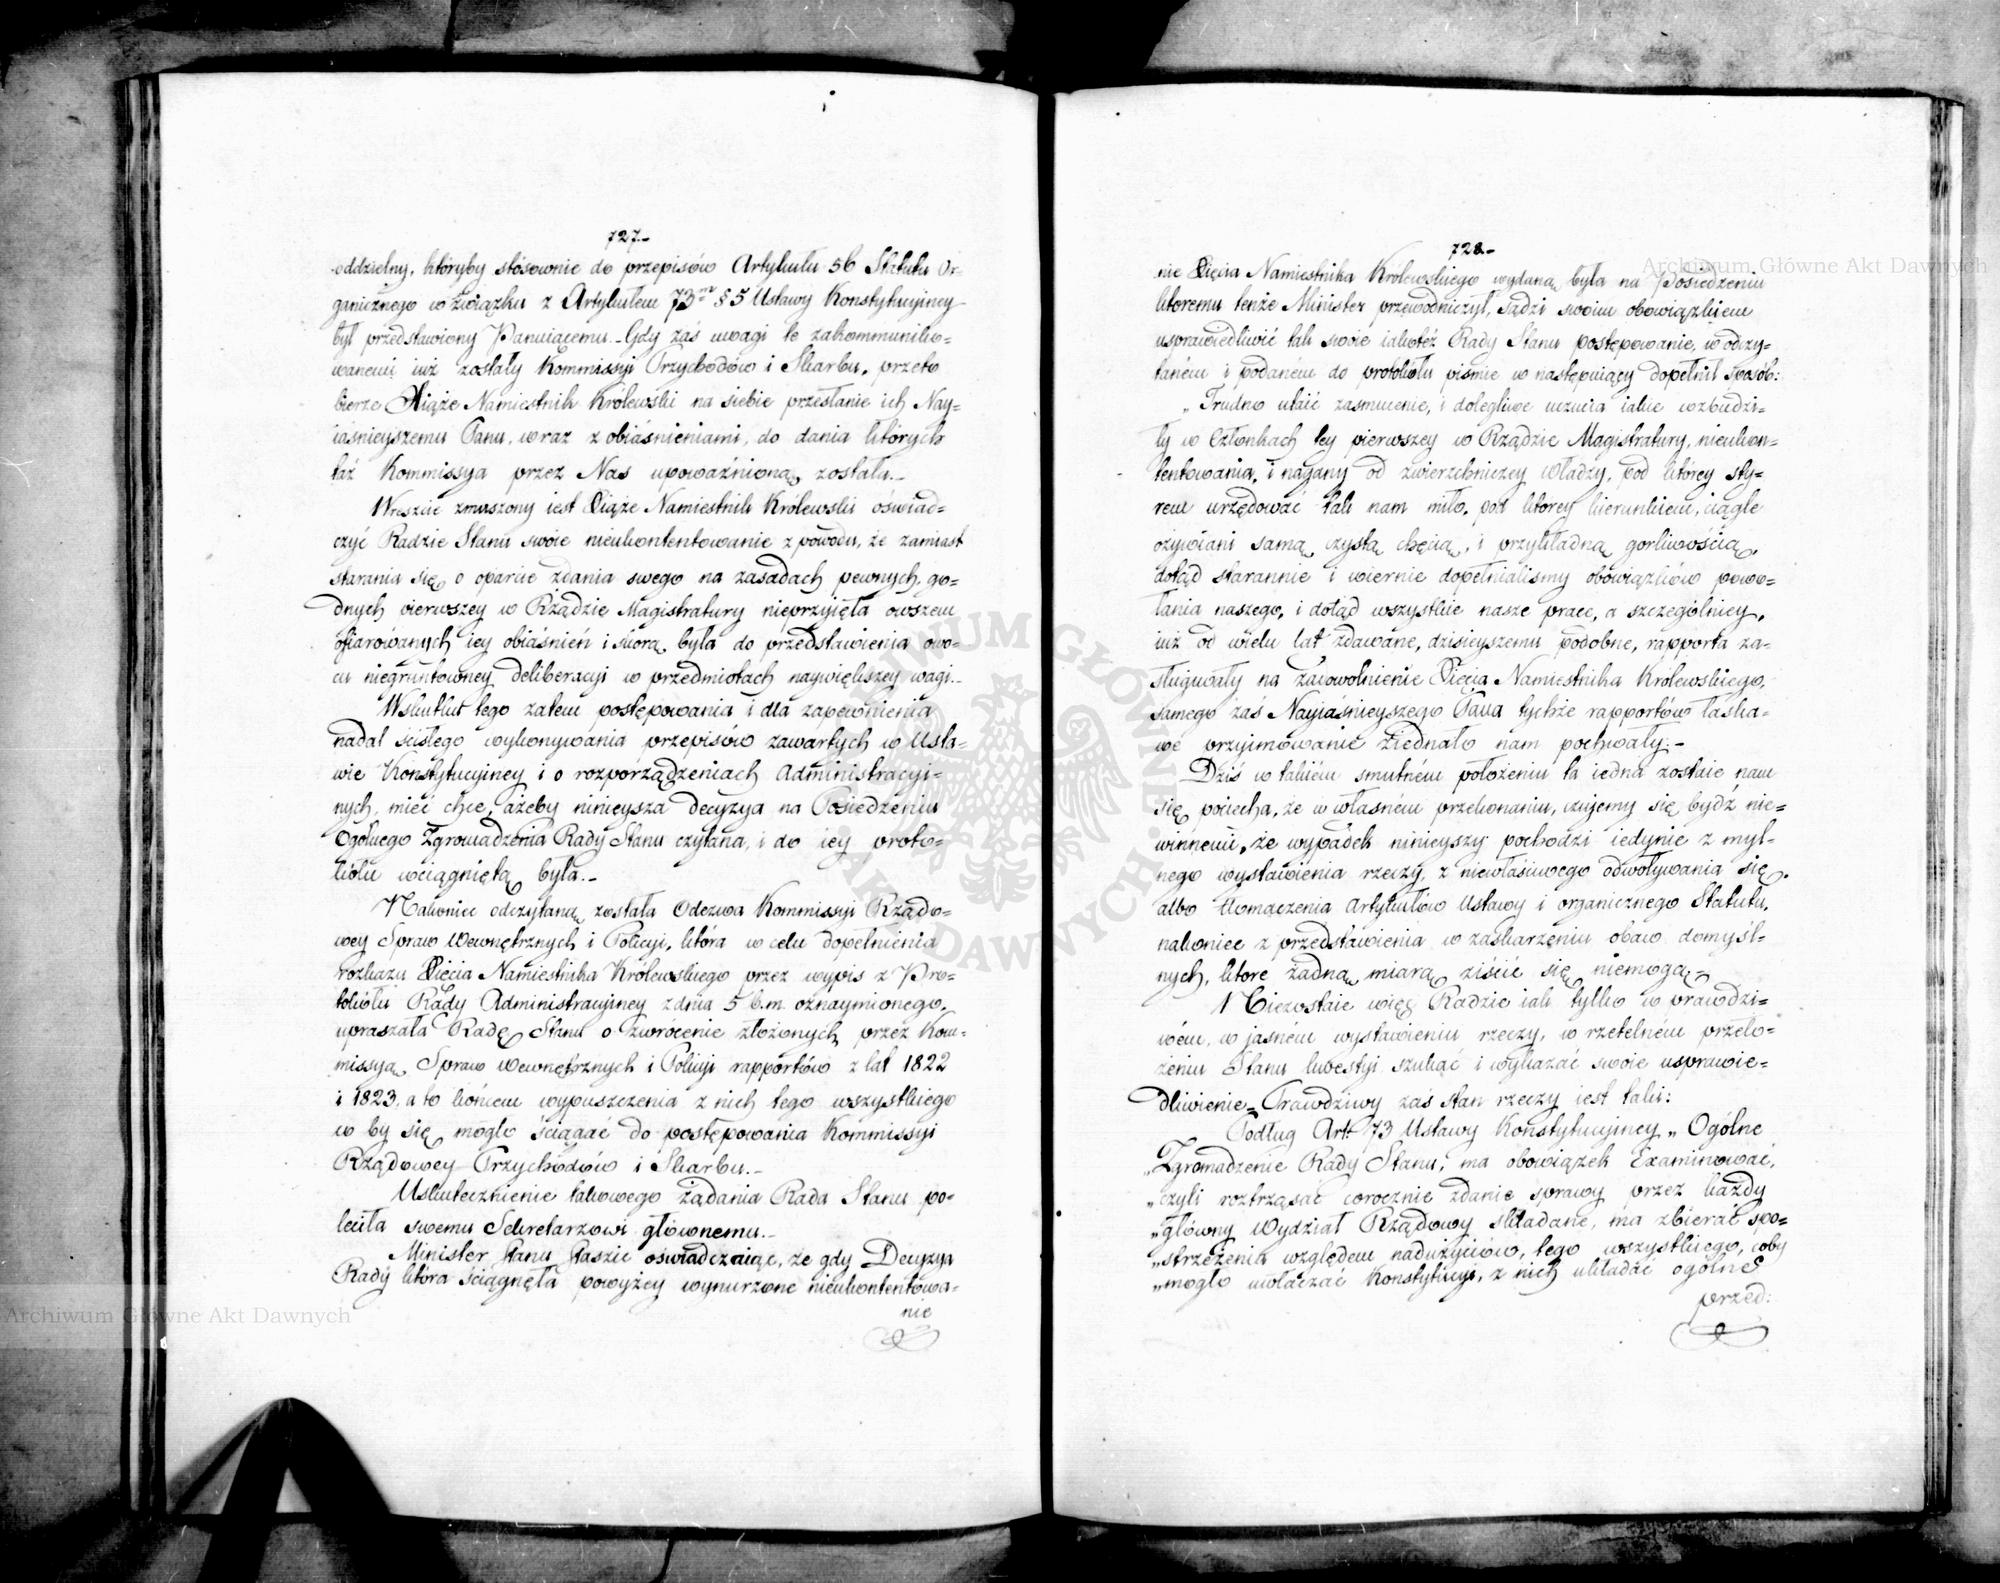 727.
oddzielny, któryby stósownie do przepisów Artykułu 56 Statutu Or-
ganicznego w związku z Artykułem 73m § 5 Ustawy Konstytucyiney
był przedstawiony Panuiącemu. Gdy zaś uwagi te zakommuniko-
wanemi iuż zostały Kommissyi Przychodów i Skarbu, przeto
bierze Xiąże Namiestnik Królewski na siebie przesłanie ich Nay-
iaśnieyszemu Panu, wraz z obiaśnieniami, do dania których
taż Kommissya przez Nas upoważnioną została.
Wreszcie zmuszony iest Xiąże Namiestnik Królewski oświad-
czyć Radzie Stanu swoie nieukontentowanie z powodu, że zamiast
starania się o oparcie zdania swego na zasadach pewnych, go-
dnych pierwszey w Rządzie Magistratury nieprzyięła owszem
ofiarowanych iey obiaśnień i skorą była do przedstawienia owo-
cu niegruntowney deliberacyi w przedmiotach naywiększey wagi.
Wskutku tego zatem postępowania i dla zapewnienia
nadal ścisłego wykonywania przepisów zawartych w Usta-
wie Konstytucyiney i o rozporządzeniach Administracyi-
nych, mieć chcę, ażeby ninieysza decyzya na Posiedzeniu
Ogólnego Zgromadzenia Rady Stanu czytana, i do iey proto-
kółu wciągniętą była.
Nakoniec odczytaną została Odezwa Kommissyi Rządo-
wey Spraw Wewnętrznych i Policyi, która w celu dopełnienia
rozkazu Xięcia Namiestnika Królewskiego przez wypis z Pro-
tokółu Rady Administracyiney z dnia 5 b.m. oznaymionego,
upraszała Radę Stanu o zwrócenie złożonych przez Kom-
missyą Spraw Wewnętrznych i Policyi rapportów z lat 1822
i 1823, a to końcem wypuszczenia z nich tego wszystkiego
co by się mogło ściągać do postępowania Kommissyi
Rządowey Przychodów i Skarbu.
Uskutecznienie takowego żądania Rada Stanu po-
leciła swemu Sekretarzowi głównemu.
Minister Stanu Staszic oświadczaiąc, że gdy Decyzya
Rady która ściągnęła powyżey wynurzone nieukontentowa-
nie
728.
nie Xięcia Namiestnika Królewskiego wydaną była na Posiedzeniu
któremu tenże Minister przewodniczył, sądzi swoim obowiązkiem
usprawiedliwić tak swoie iakoteż Rady Stanu postępowanie, w odczy-
taném i podaném do protokółu piśmie w następuiący dopełnił sposób:
„Trudno utaić zasmucenie, i dolegliwe uczucia iakie wzbudzi-
ły w Członkach tey pierwszey w Rządzie Magistratury, nieukon-
tentowania, i nagany od zwierzchniczey władzy, pod którey sty-
rem urzędować tak nam miło, pod którey kierunkiem, ciągle
ożywiani samą czystą chęcią, i przykładną gorliwością,
dotąd starannie i wiernie dopełnialiśmy obowiązków powo-
łania naszego, i dotąd wszystkie nasze prace, a szczególniey,
iuż od wielu lat zdawane, dzisieyszemu podobne, rapporta za-
sługiwały na zadowolnienie Xięcia Namiestnika Królewskiego,
samego zaś Nayiaśnieyszego Pana tychże rapportów łaska-
we przyimowanie ziednało nam pochwały.
Dziś w takiém smutném położeniu ta iedna zostaie nam
się pociecha, że w własném przekonaniu, czujemy się bydź nie-
winnemi, że wypadek ninieyszy pochodzi iedynie z myl-
nego wystawienia rzeczy, z niewłaściwego odwoływania się,
albo tłomaczenia Artykułów Ustawy i organicznego Statutu,
nakoniec z przedstawienia w zaskarżeniu obaw domyśl-
nych, które żadną miarą ziścić się niemogą.
Niezostaie więc Radzie iak tylko w prawdzi-
wém, w jasném wystawieniu rzeczy, w rzetelném przeło-
żeniu Stanu kwestyi szukać i wykazać swoie usprawie-
dliwienie. Prawdziwy zaś stan rzeczy iest taki:
Podług Art. 73 Ustawy Konstytucyiney „Ogólne
„Zgromadzenie Rady Stanu, ma obowiązek Examinować,
„czyli roztrząsać corocznie zdanie sprawy przez każdy
„główny Wydział Rządowy składane, ma zbierać spo-
„strzeżenia względem nadużyciów, tego wszystkiego, coby
„mogło uwłaczać Konstytucyi, z nich układać ogólne
przed:
Archiwum Główne Akt Dawnych
Archiwum Główne Akt Dawnych
ARCHIWUM GŁÓWNE AKT DAWNYCH